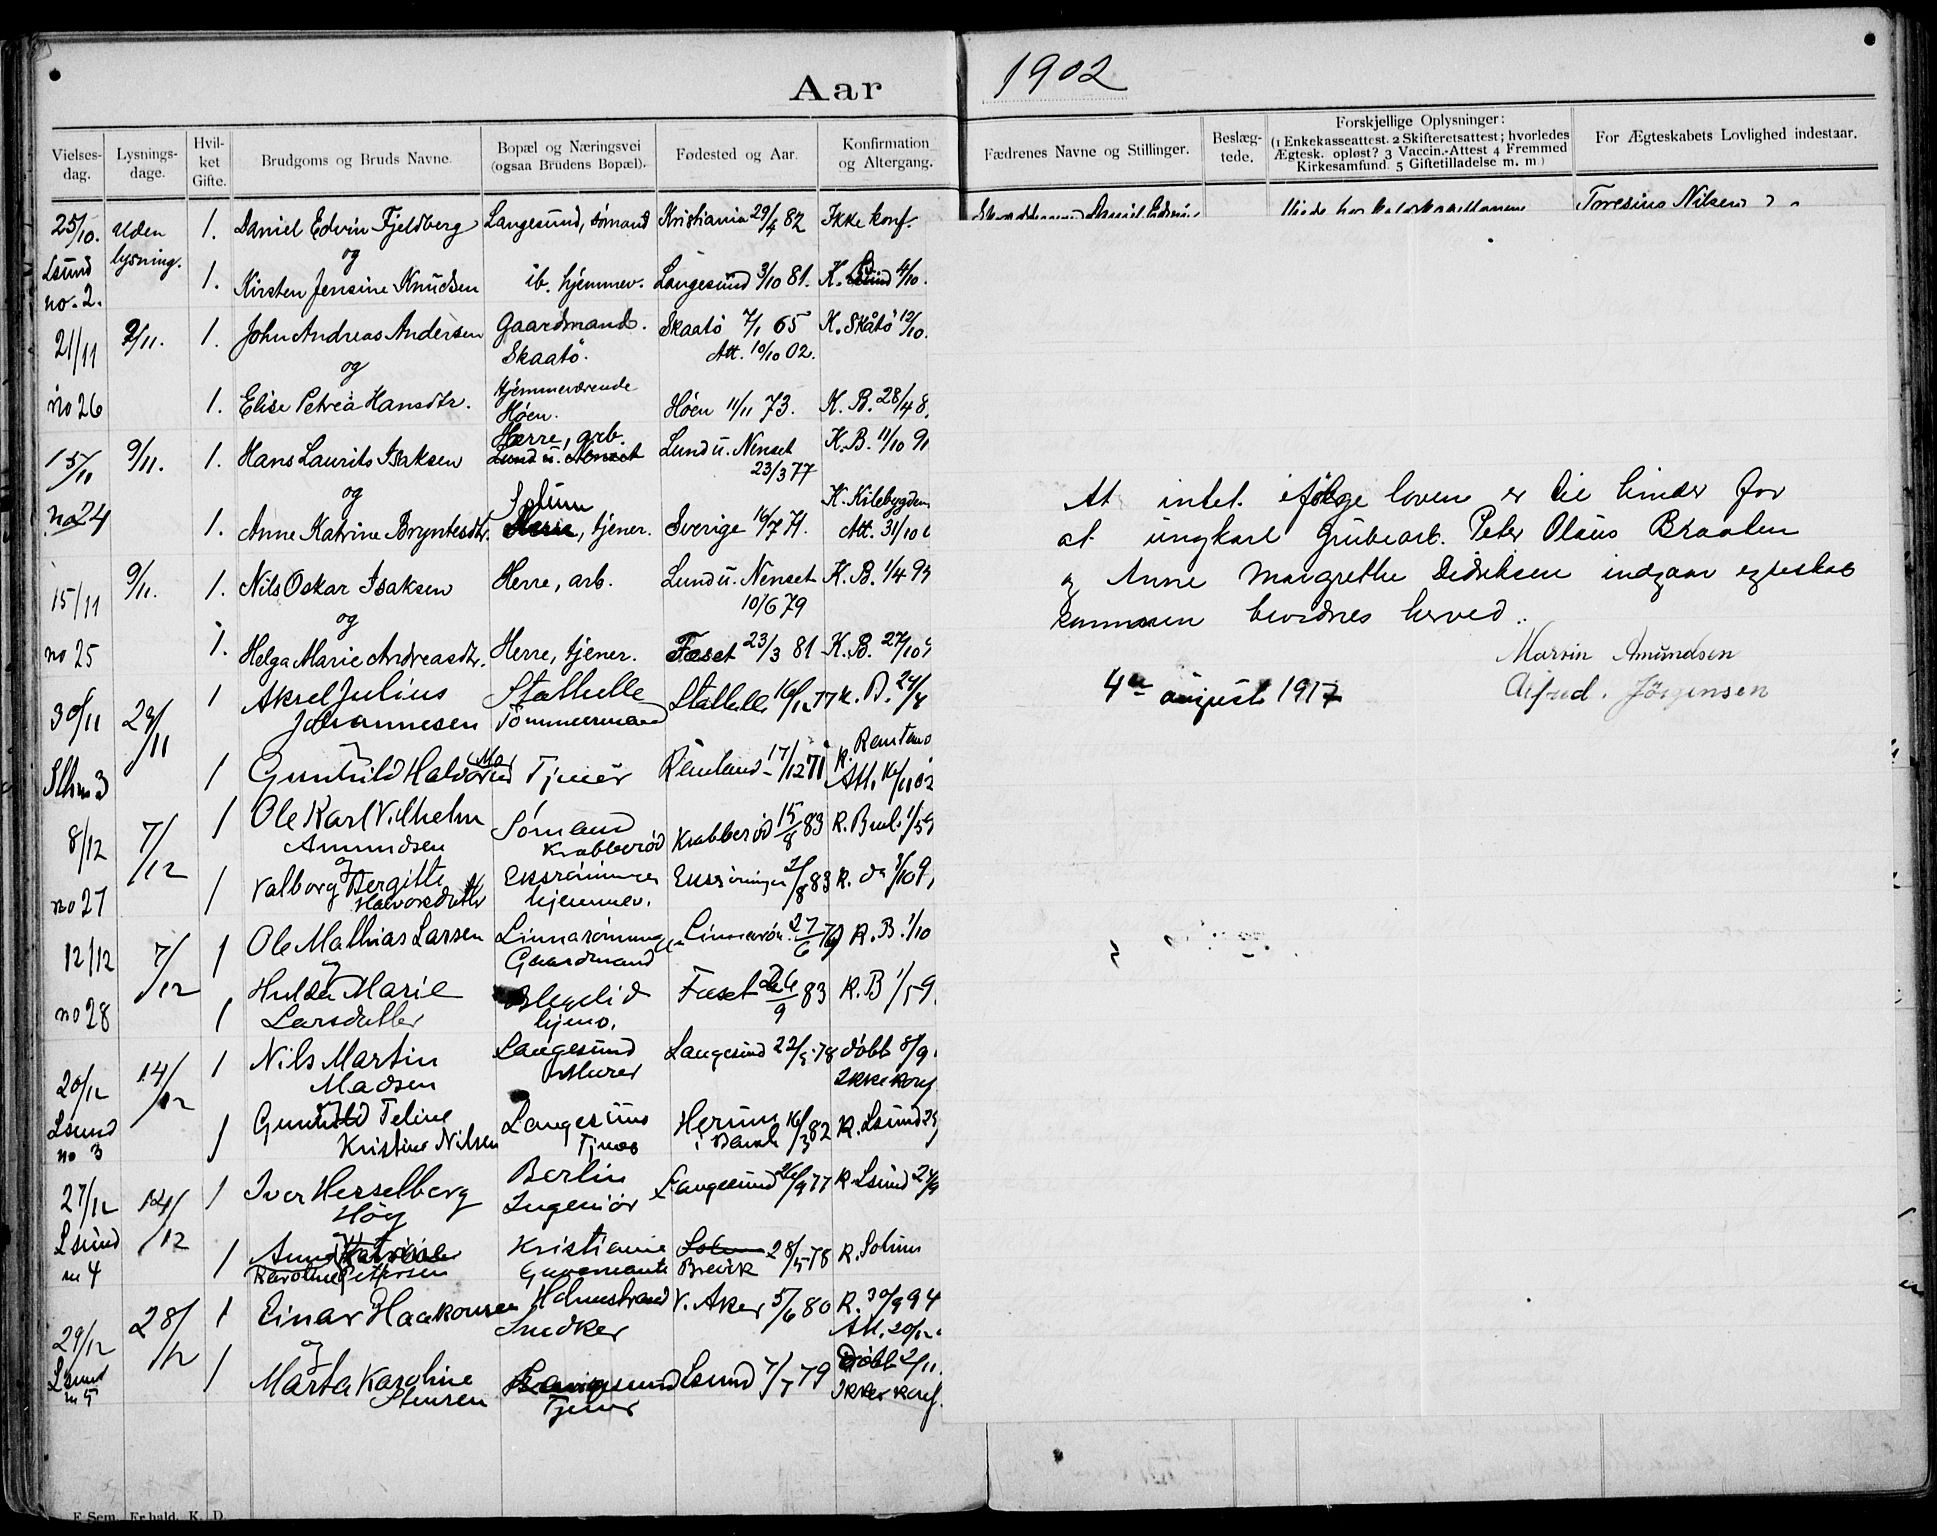 Aar 1902
Vielses-dag. Lysnings-dage. Hvil-ket Gifte. Brudgoms og Bruds Navne. Bopæl og Næringsvei (ogsaa Brudens Bopæl). Fødested og Aar. Konfirmation og Altergang. Fædrenes Navne og Stillinger. Beslæg-tede. Forskjellige Oplysninger: (1 Enkekasseattest. 2 Skifteretsattest; hvorledes Ægtesk. opløst? 3 Vaccin.-Attest 4 Fremmed Kirkesamfund. 5 Giftetilladelse m. m) For Ægteskabets Lovlighed indestaar.
25/10. Uden 1. Daniel Edvin Fjeldberg Langesund, sömand Kristiania 29/4 82 Ikke konf.
Lsund lysning. og
no. 2. 1. Kirsten Jensine Knudsen ib. hjemmev. Langesund 3/10 81. K. 4/10.
Toresius Nilsen
21/11 9/11. 1. John Andreas Andersen Gaardmand. Skaatö 7/1 65 K. Skåtö 12/10.
og Skaatö. Att. 10/10 02.
no 26 1. Elise Petrea Hansdtr. Hjemmeværende Höen. Höen 11/11 73. K. B. 28/4 8.
15/11 9/11. 1. Hans Laurits Isaksen Herre, arb. Lund u. Nenset Lund u. Nenset 23/3 77 K. B. 11/10 91
og
no 24 1. Anne Katrine Bryntesdtr. Solum Herre, tjener. Sverige 16/7 71. K. Kilebygden Att. 31/10
15/11 9/11. 1. Nils Oskar Isaksen Herre, arb. Lund u. Nenset 10/6 79 K. B. 1/4 94
og
no 25 1. Helga Marie Andreasdtr. Herre, tjener. Faset 23/3 81 K. B. 27/10
30/11 29/11 1 Aksel Julius Johannesen Stathelle Tömmermand Stathelle 16/12 77 K. B. 24/4
Sthno 3 1 Gunhild Halvorsd Tjener Remland 17/12 71 K. Att. 16/11 02
8/12 7/12 1 Ole Karl Vilhelm Amundsen Sömand Krabberöd Krabberöd 15/8 83 K. Bmb. 1/5
og
no 27 1 Valborg Bergitte Halvorsdatter hjemmev. 83 K.
12/12 7/12 1 Ole Mathias Larsen Gaardmand 27/6 K. B. 1/10
og
no 28 1 Hulda Marie Larsdatter hjem. Faset 26/9 83 K. B 1/5 9.
20/12 14/12 1 Nils Martin Madsen Langesund Murer Langesund 22/5 78 döbt 8/9 Ikke konf
Lsund no 3 1 Gunhild Teline Kristine Nilsen Langesund Tjener Herum i Bamb 16/3 82 K. Lsund
27/12 14/12 1 Iver Hesselberg Höy Berlin Ingeniör Langesund 26/9 77 K. Lsund
Lsund no 4 1 Anna Karoline Petersen Kristiania Guvernante Brevik 28/5 78 K. Solum
29/12 28/12 1 Einar Haakonsen Holmestrand Snedker V. Aker 5/6 80 K. 30/9 94 Att. 20/12
og
Lsund no 5 1 Marta Karoline Stensen Langesund Tjener Lsund 7/7 79 Döbt 2/11. Ikke konf.
At intet ifölge loven er til hinder for
at ungkarl Grubearb. Peter Olaus Braaten
og Anne Margrethe Didriksen indgaar egteskab
sammen bevidnes herved.
Marvin Amundsen
4de august 1917 Alfred. Jörgensen
F. Sem, Fr.hald. K. D.